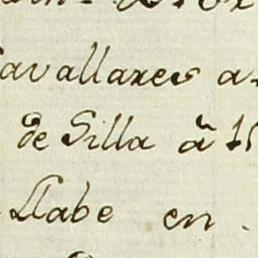 Cavallares a
de Silla à 15
Llabe en